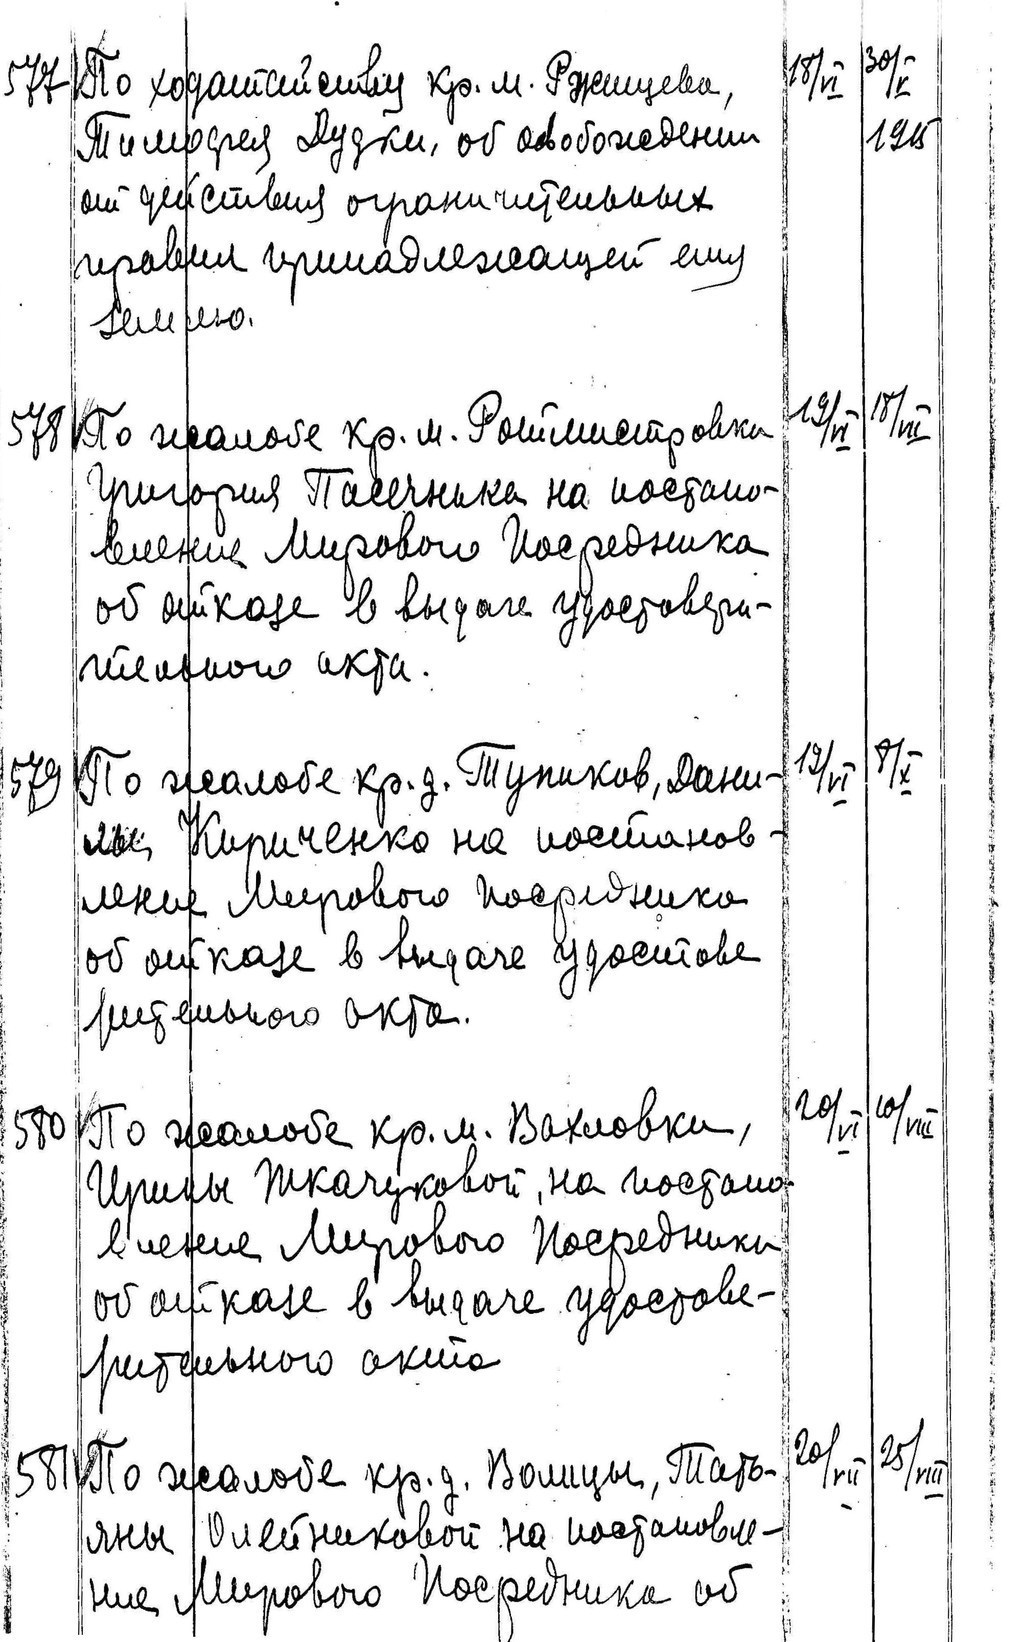 577 По ходатайству кр. м. Ржищева, 18/VI 30/V
Тимофея Дудки, об освобождении 1915
от действия ограничительных
правил принадлежащей ему
землю.
578 По жалобе кр. м. Ротмистровки 19/VI 18/VII
Григория Пасечника на постано-
вление Мирового Посредника
об отказе в выдаче удостовери-
тельного акта.
579 По жалобе кр. д. Тупиков, Дани- 19/VI 8/X
лы Кириченко на постанов-
ление Мирового Посредника
об отказе в выдаче удостове
рительного акта.
580 По жалобе кр. м. Вахновки, 20/VI 10/VIII
Ирины Ткачуковой, на постано-
вление Мирового Посредника
об отказе в выдаче удостове-
рительного акта
581 По жалобе кр. д. Волицы, Тать- 20/VII 25/VIII
яны Олейниковой на постановле-
ние Мирового Посредника об